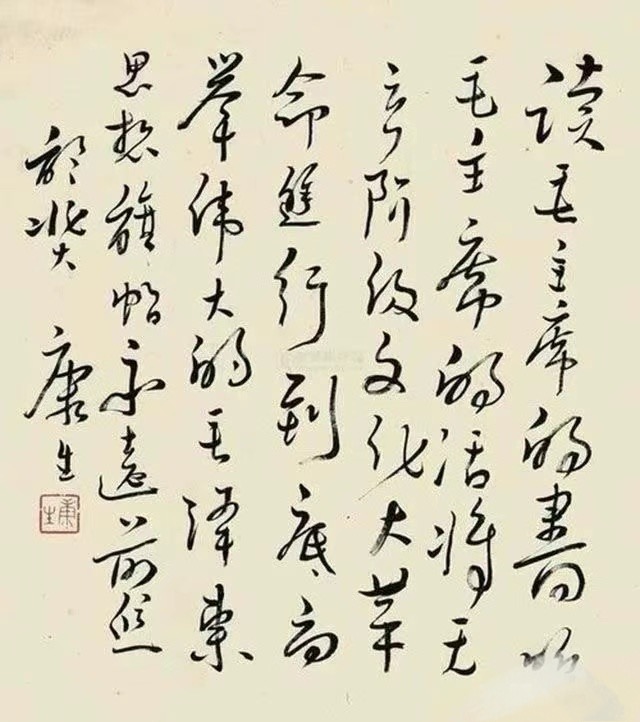 读毛主席的書听
毛主席的话将无
产阶级文化大革
命進行到底高
举伟大的毛泽東
思想旗帜永遠前進
康生
康生